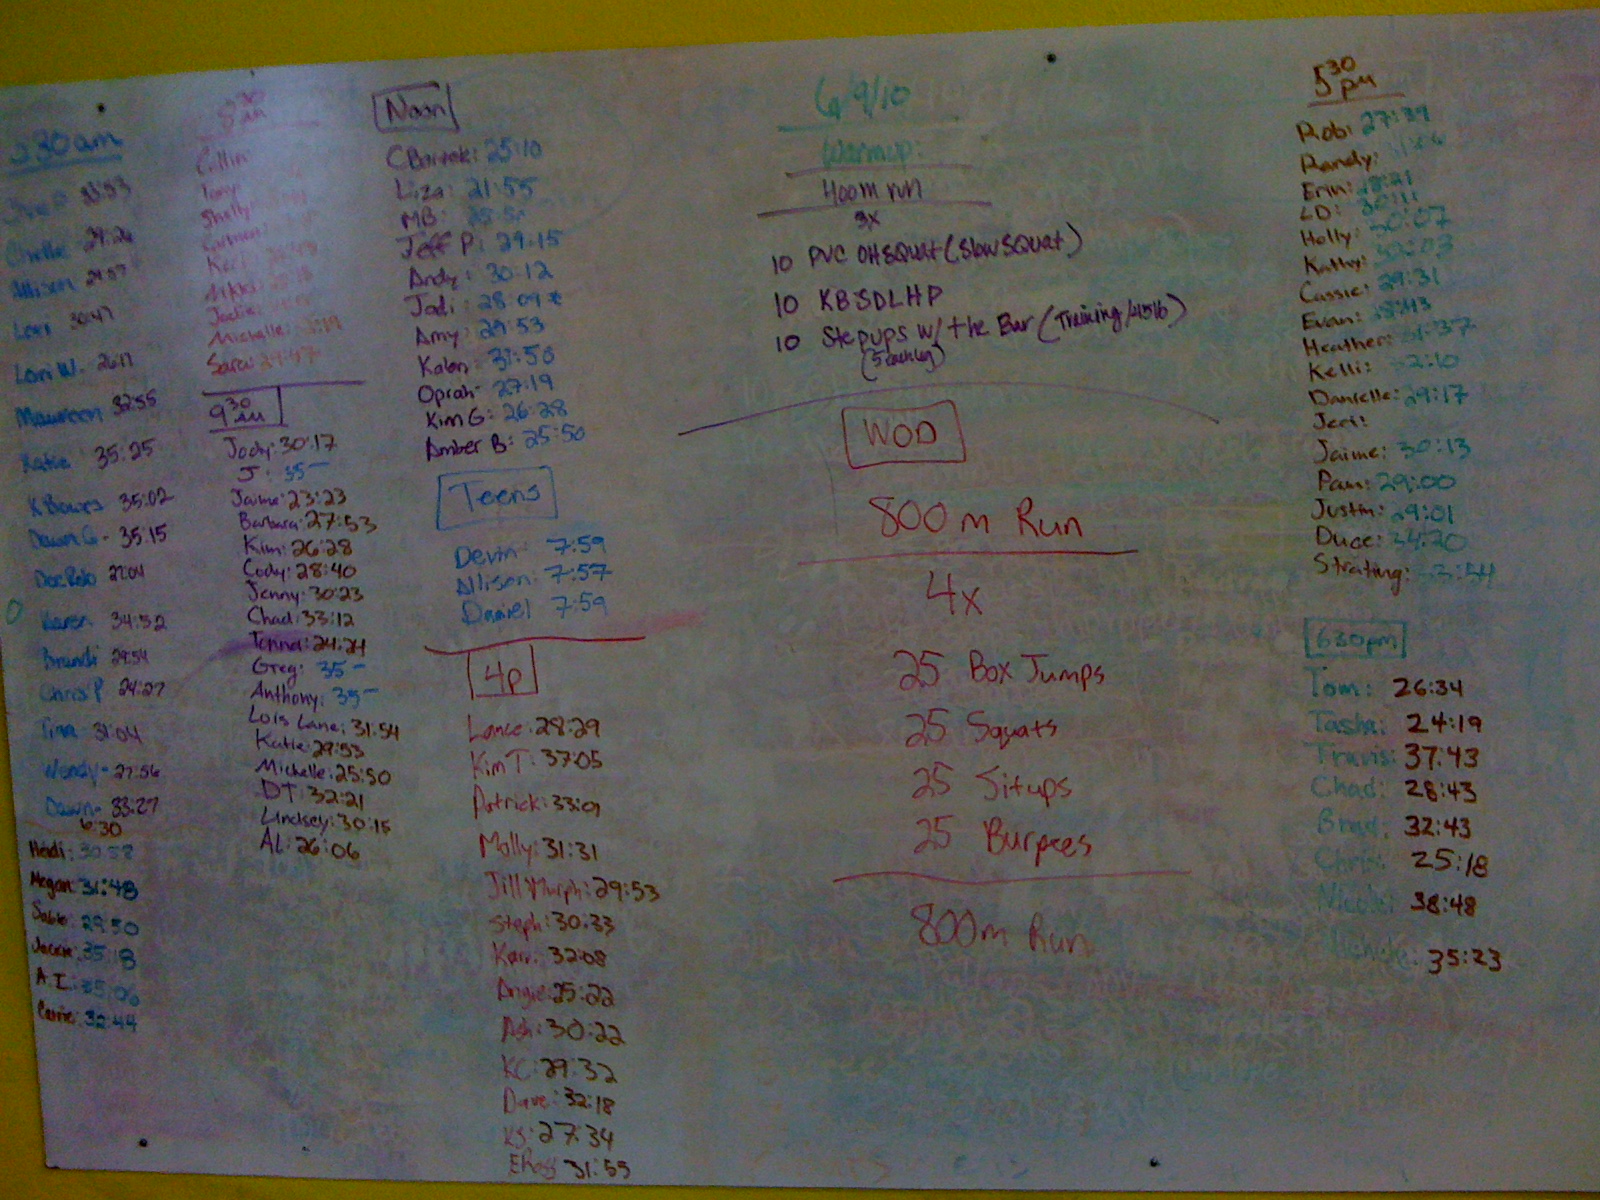 530am
33:53
Chelle 29:26
Allison 29:57
Lori 30:47
Lori W. 26:11
Maureen 32:55
Katie 35:25
K Bowes 35:02
Dawn G - 35:15
Doc Rob 27:04
Karen 34:52
Brandi 29:54
Chris P 24:27
Tina 31:04
Wendy - 27:56
Dawn - 33:27
6:30
Heidi: 30:58
Megan: 31:48
29:50
Jackie: 35:18
A.I: 35:06
Carrie: 32:44
8 30 am
Collin
Tony
Shelly
Carmen
Keri
Nikki
Jodie
Michelle
Sara: 29:47
9 30 am
Jody: 30:17
J: 35-
Jaime: 23:23
Barbara: 27:53
Kim: 26:28
Cody: 28:40
Jenny: 30:23
Chad: 33:12
24:24
Greg: 35-
Anthony: 35-
Lois Lane: 31:54
Katie: 29:53
Michelle: 25:50
DT: 32:21
Lindsey: 30:15
AL: 26:06
Noon
C Bartok: 25:10
Liza: 21:55
MB:
Jeff P: 29:15
Andy: 30:12
Jodi: 28:09 *
Amy: 29:53
Kalen: 31:50
Oprah- 27:19
Kim G: 26:28
Amber B: 25:50
Teens
Devin: 7:59
Allison: 7:57
Daniel 7:59
4p
Lance: 28:29
Kim T: 37:05
Patrick: 33:09
Molly: 31:31
Jill Murph: 29:53
Steph: 30:33
Kari: 32:08
Angie: 25:22
Ash: 30:22
KC: 29:32
Dave: 32:18
KJ: 27:34
E Ross 31:55
6/9/10
Warmup:
400m run
3x
10 PVC OHSQuat (Slow SQuat)
10 KBSDLHP
10 Stepups w/ the Bar (Training/45lb)
(5 each leg)
WOD
800 m Run
4x
25 Box Jumps
25 Squats
25 Situps
25 Burpees
800m Run
5 30 pm
Rob: 27:39
Randy:
Erin: 28:21
LD: 30:11
Holly: 30:07
Kathy: 32:03
Cassie: 29:31
Evan: 28:43
Heather:
Kelli: 32:10
Danielle: 29:17
Jeri:
Jaime: 30:13
Pam: 29:00
Justin: 29:01
Duce: 34:20
Strating: 33:54
630pm
Tom: 26:34
Tasha: 24:19
Travis: 37:43
Chad: 28:43
Brad: 32:43
Chris: 25:18
Nicole: 38:48
35:23